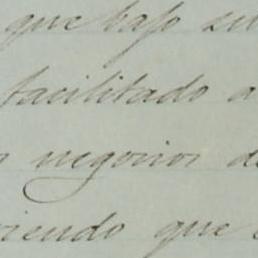 que bajo su
facilitado a
negocios de
riendo que